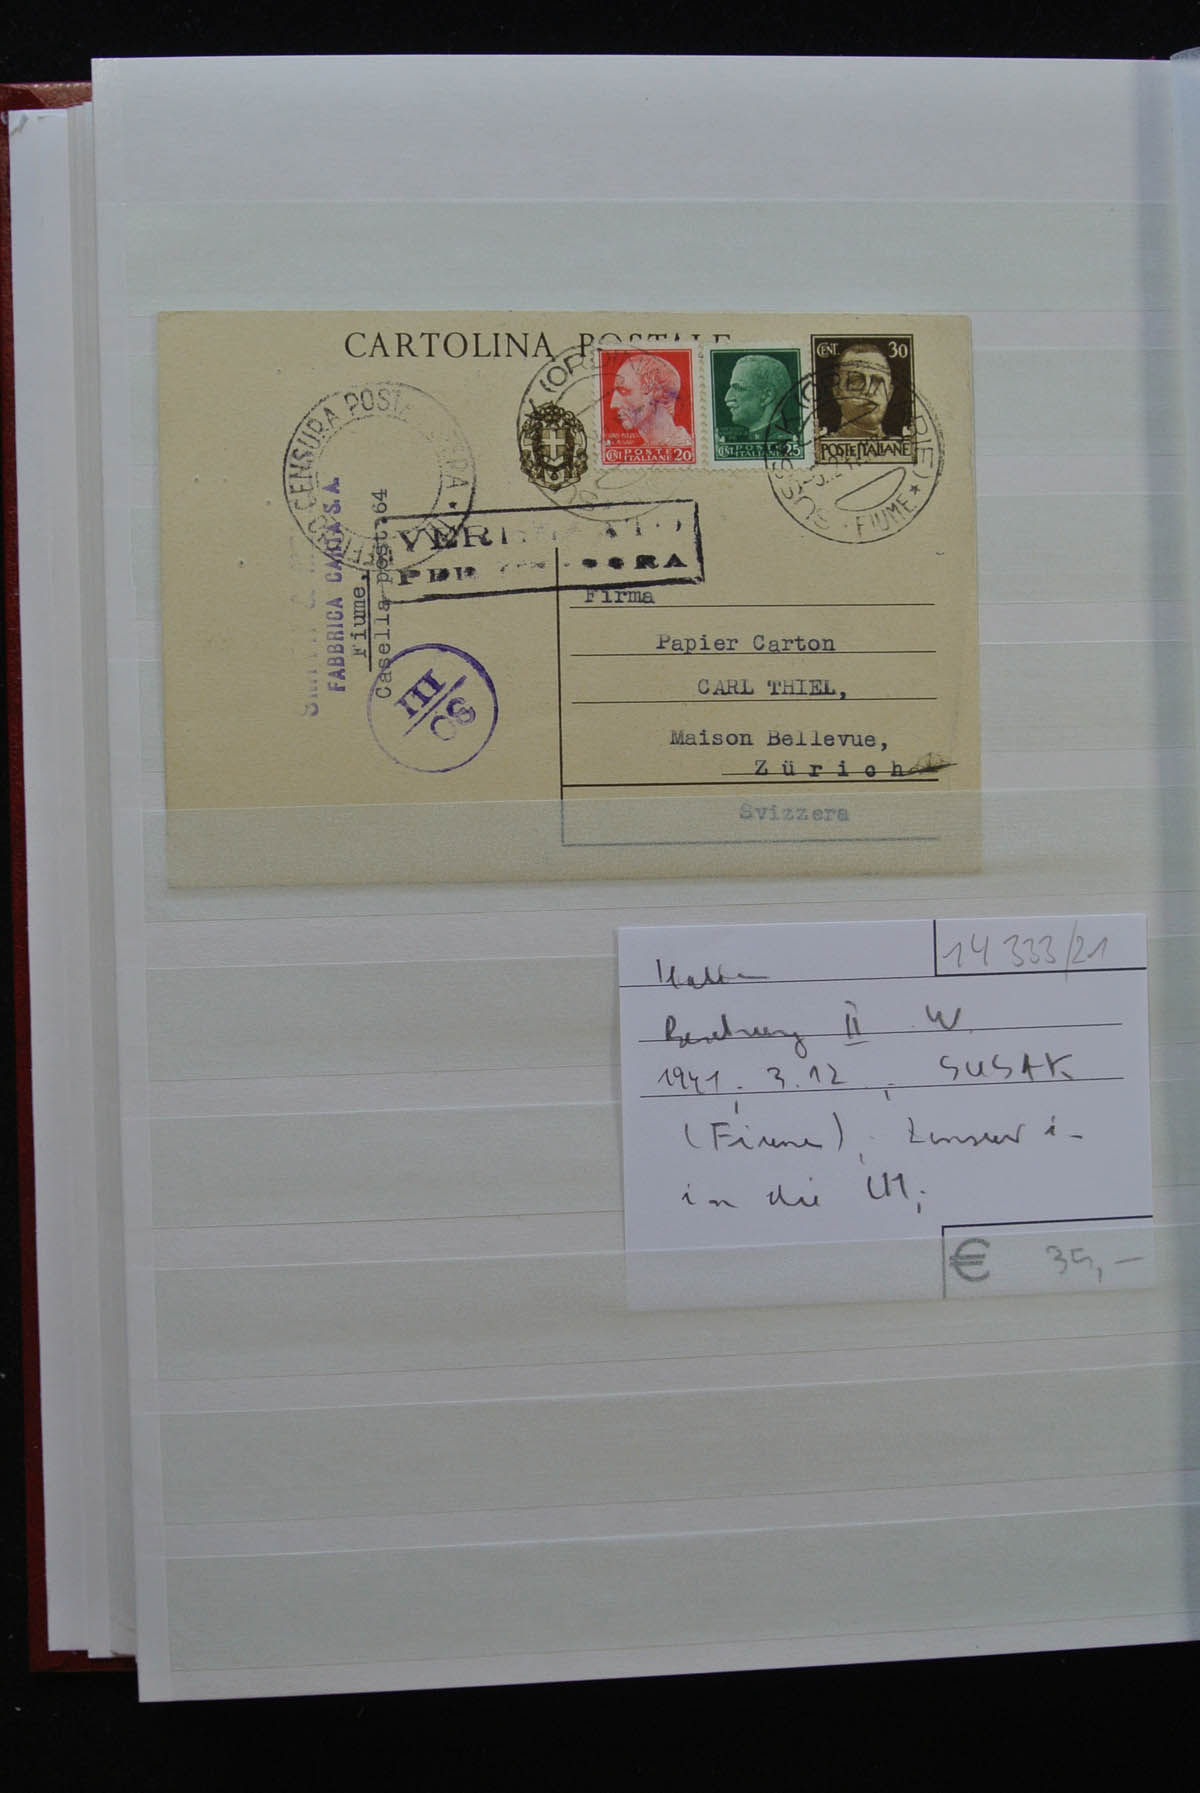 CARTOLINA POSTALE
CENT. 30
POSTE ITALIANE
POSTE
CENT ITALIANE 20
POSTE
CENT ITALIANE 25
CENSURA POSTALE
SUSSAK (ORDINARIE)
FIUME
VERIFICATO
PER CENSURA
FABBRICA CARTA S.A.
Fiume,
Casella post. 64
SO
III
Firma
Papier Carton
CARL THIEL,
Maison Bellevue,
Zürich
Svizzera
14 333/21
Italien
Besetzung II W.
1941, 3.12, SUSAK
(Fiume), Zensur i-
in die
€ 35,-